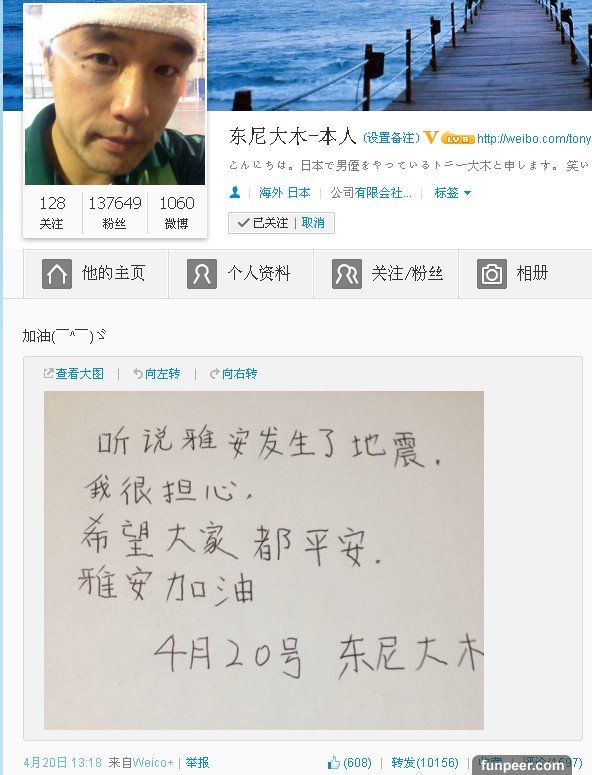 东尼大木-本人 (设置备注) V LV8 http://weibo.com/tony
こんにちは。日本で男優をやっているトニー大木と申します。笑い
海外 日本 | 公司有限会社... | 标签
128 137649 1060
关注 粉丝 微博
已关注 | 取消
他的主页 个人资料 关注/粉丝 相册
加油(￣^￣)ゞ
查看大图 | 向左转 | 向右转
听说雅安发生了地震.
我很担心.
希望大家都平安.
雅安加油
4月20号 东尼大木
4月20日 13:18 来自Weico+ | 举报 (608) | 转发(10156) | 收藏 | 评论(1697)
funpeer.com